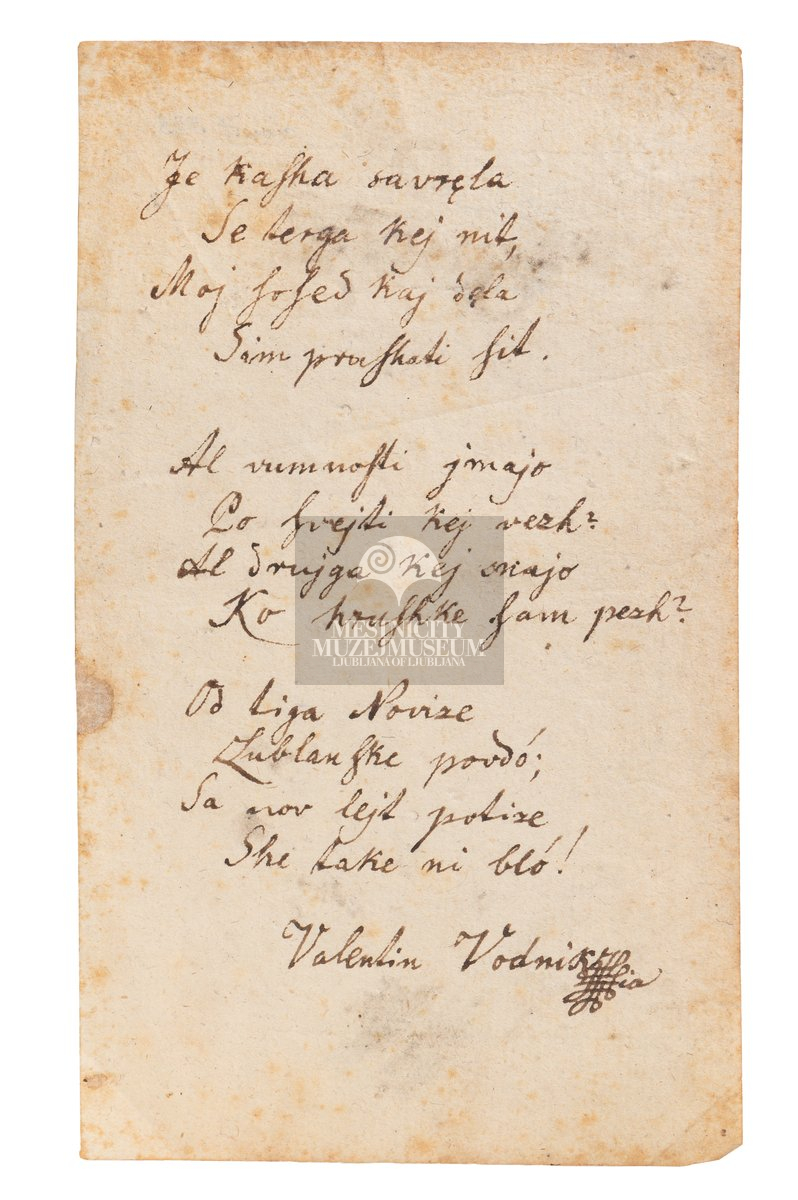 Je kaſha savręla
Se terga kej nit,
Moj ſoſed kaj dęla
Sim praſhati ſit.
Al vumnoſti jmajo
Po ſvejti kej vezh?
Al drujga kej snajo
Ko hruſhke ſam pezh?
MESTNI CITY
MUZEJ MUSEUM
LJUBLJANA OF LJUBLJANA
Od tiga Novize
Lublanſke povdó;
Sa nov lejt potize
She take ni bló!
Valentin Vodnik